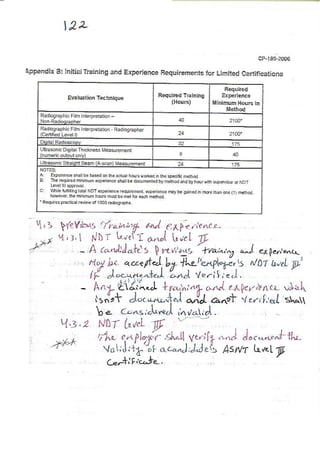 122
CP-189-2006
Appendix B: Initial Training and Experience Requirements for Limited Certifications
Evaluation Technique
Required Training (Hours)
Required Experience Minimum Hours in Method
Radiographic Film Interpretation – Non-Radiographer
40
2100*
Radiographic Film Interpretation - Radiographer (Certified Level I)
24
2100*
Digital Radioscopy
32
175
Ultrasonic Digital Thickness Measurement (numeric output only)
8
40
Ultrasonic Straight Beam (A-scan) Measurement
24
175
A: Experience shall be based on the actual hours worked in the specific method.
B: The required minimum experience shall be documented by method and by hour with supervisor or NDT Level III approval.
C: While fulfilling total NDT experience requirement, experience may be gained in more than one (1) method, however, the minimum hours must be met for each method.
* Requires practical review of 1000 radiographs.
4.3 previous Training and experience.
4.3.1 NDT Level I and level II
- A candidate's previous training and experience
May be accepted by the employer's NDT level III
If documented and verified.
- Any claimed training and experience which
isn't documented and can't verified shall
be considered invalid.
4.3.2 NDT level III
The employer shall verify and document the
Validity of a candidate's ASNT level III
Certificate.